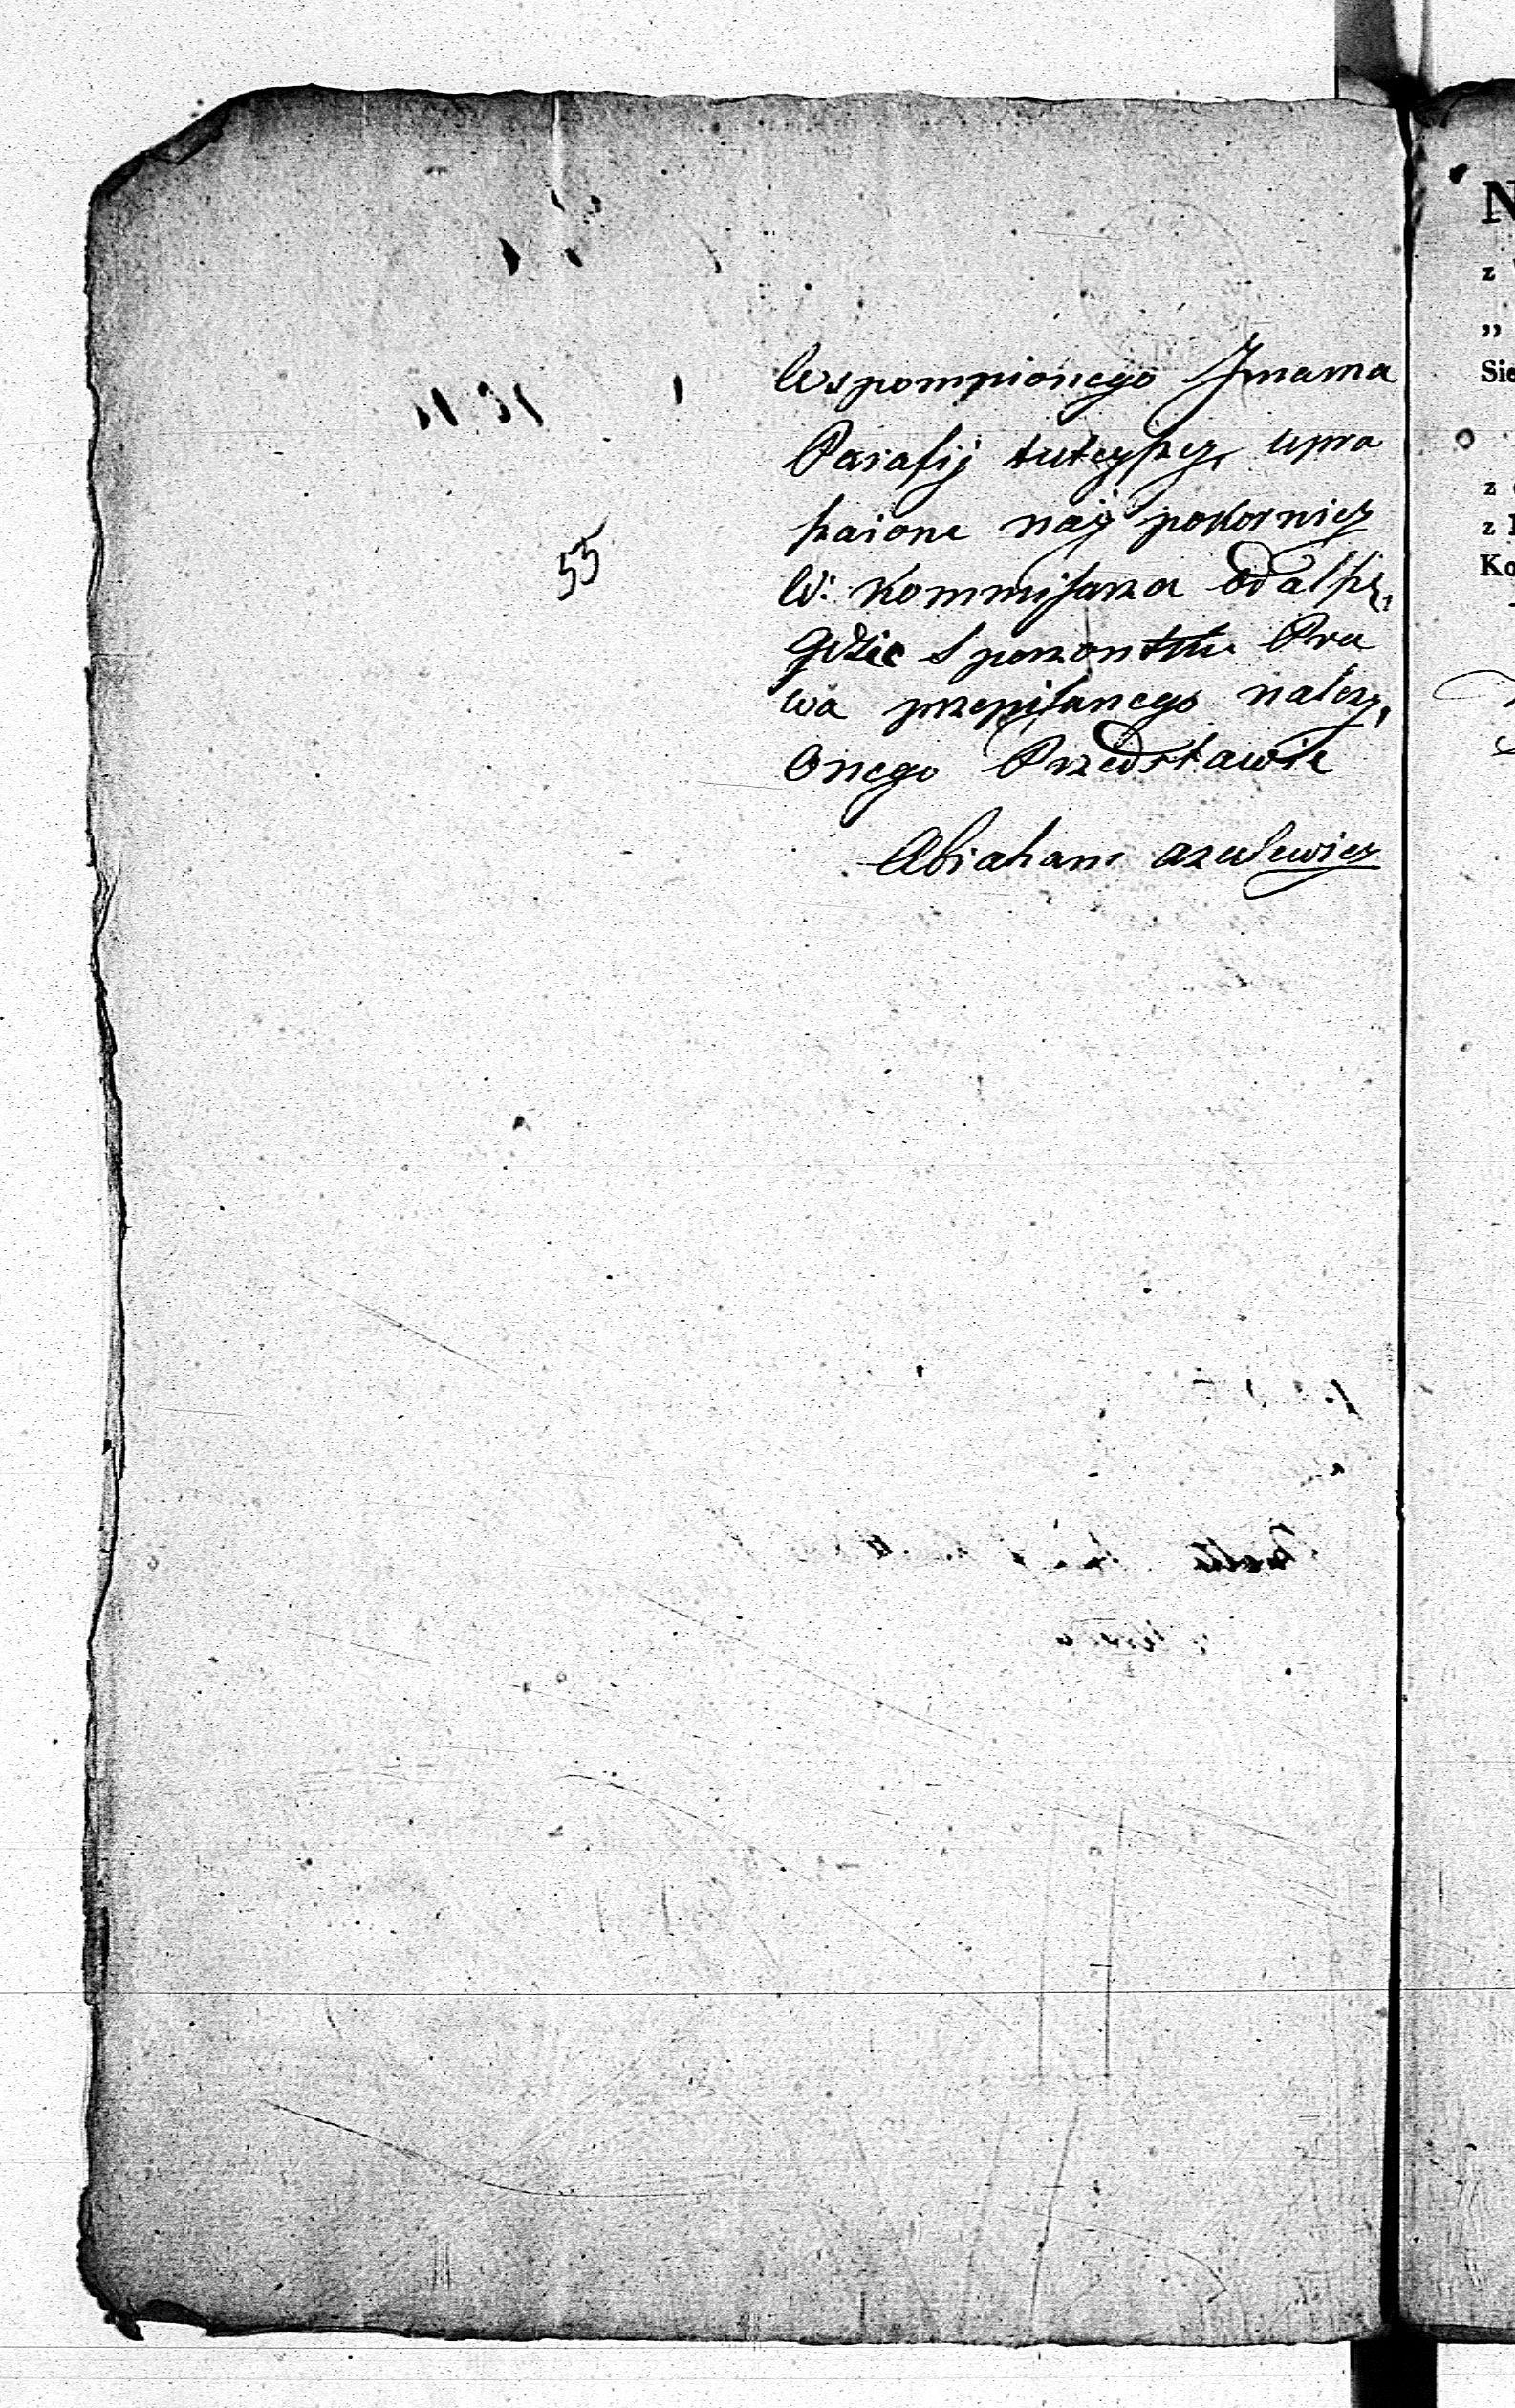 Wspomnionego Jmama
Parafij tuteyszey, upra
szaione nay pokorniey
W: Kommisarza odalsze,
gdzie s porzontku Pra
wa przepisanego należy,
Onego Przedstawie
Abraham azulewicz
55
N
z
„
Sie
z
z
Ko